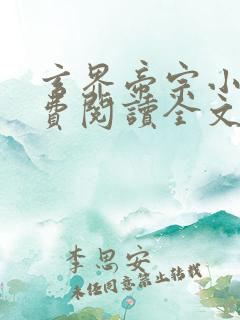 玄界帝宗小
費閱讀全文
李思安
未经同意禁止转载